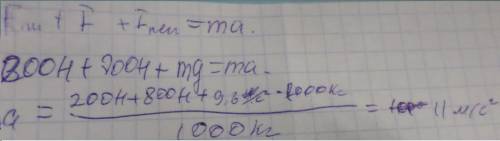 Fтт + F + Fтел = ma.
800H + 200H + mg = ma.
a = 200H + 800H + 9,8 · 1000кг / 1000кг = 11 м/с²